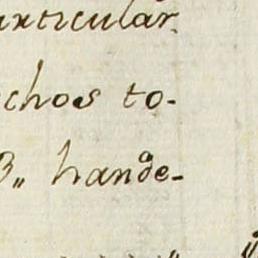 articular
chos to-
B,, hande-